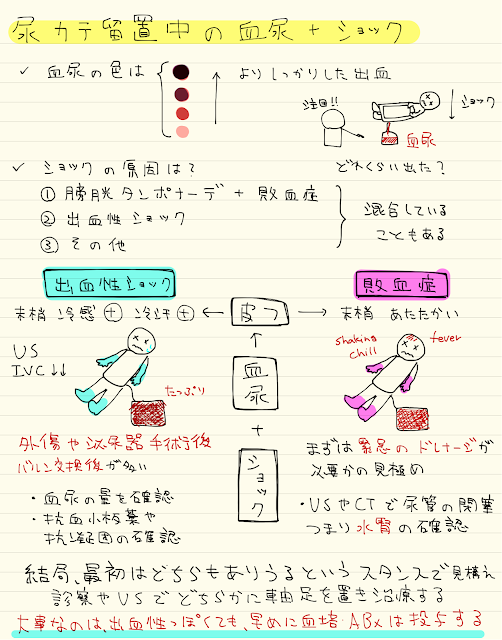 尿カテ留置中の血尿+ショック
✓ 血尿の色は
よりしっかりした出血
注目!!
ショック
血尿
どれくらい出た?
✓ ショックの原因は?
① 膀胱タンポナーデ + 敗血症
② 出血性ショック
③ その他
混合している
こともある
出血性ショック
敗血症
末梢 冷感⊕ 冷汗⊕ ← 皮フ → 末梢 あたたかい
↑
血尿
+
ショック
US
IVC↓↓
たっぷり
shaking
chill
fever
外傷や泌尿器手術後
バルン交換後が多い
・血尿の量を確認
・抗血小板薬や
抗凝固の確認
まずは緊急のドレナージが
必要かの見極め
・USやCTで尿管の閉塞
つまり水腎の確認
結局、最初はどちらもありうるというスタンスで見構え
診察やUSでどちらかに軸足を置き治療する
大事なのは、出血性っぽくても、早めに血培・ABxは投与する